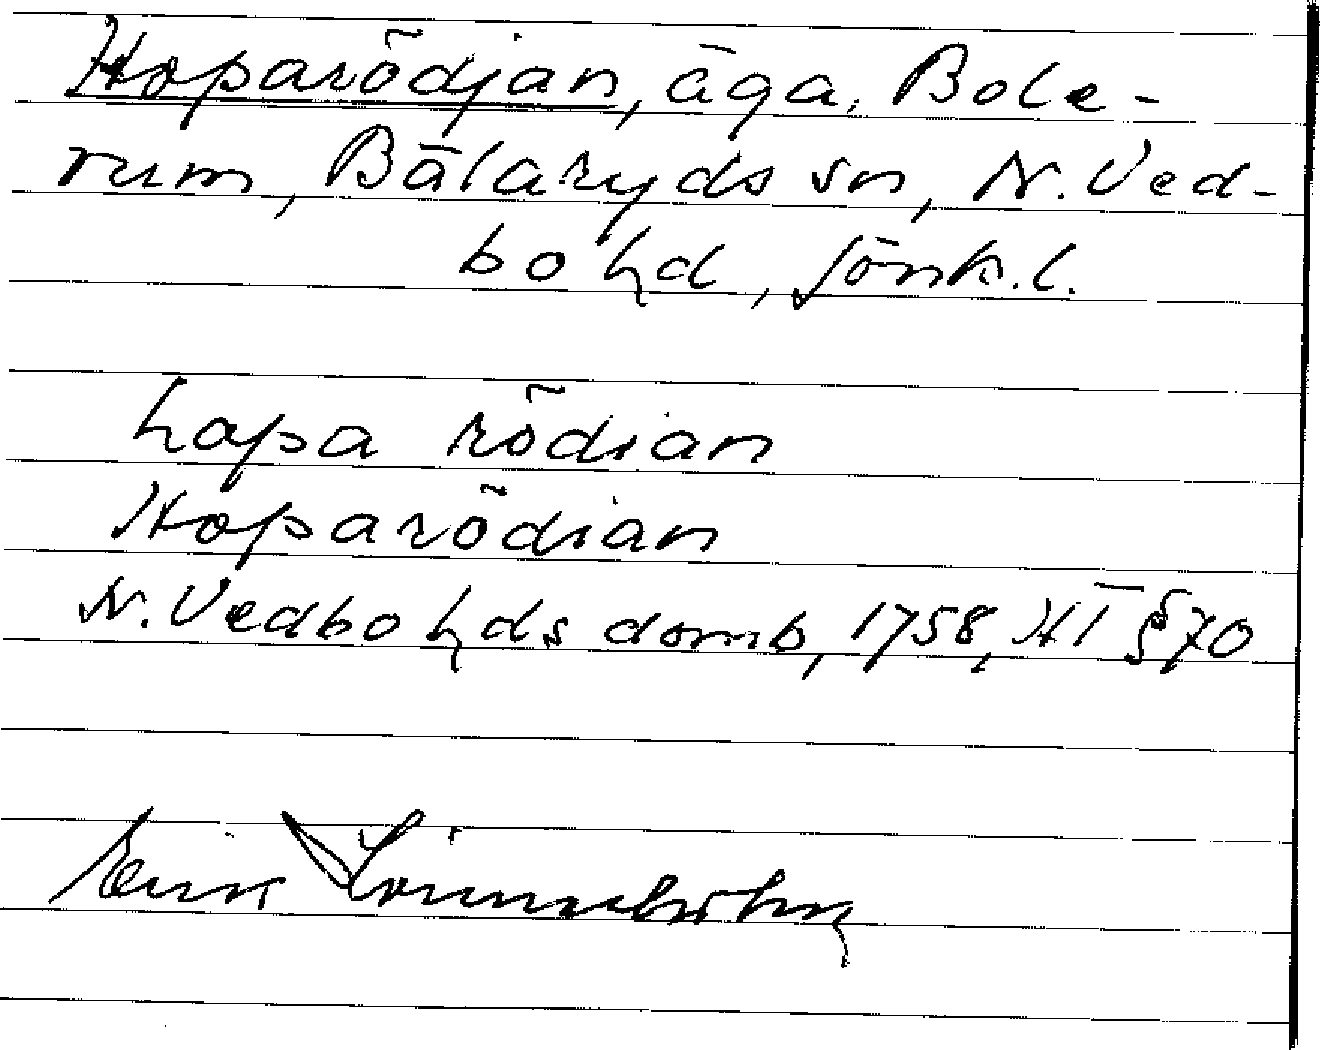 Hoparödjan, äga, Bole-
rum, Bälaryds sn, N. Ved-
bo hd, Jönk. l.
hopa rödian
Hoparödian
N. Vedbo hds domb, 1758, HT § 70
Erik